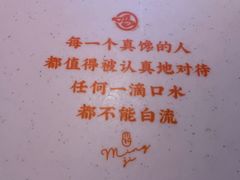 每一个真馋的人
都值得被认真地对待
任何一滴口水
都不能白流
Ming
ji